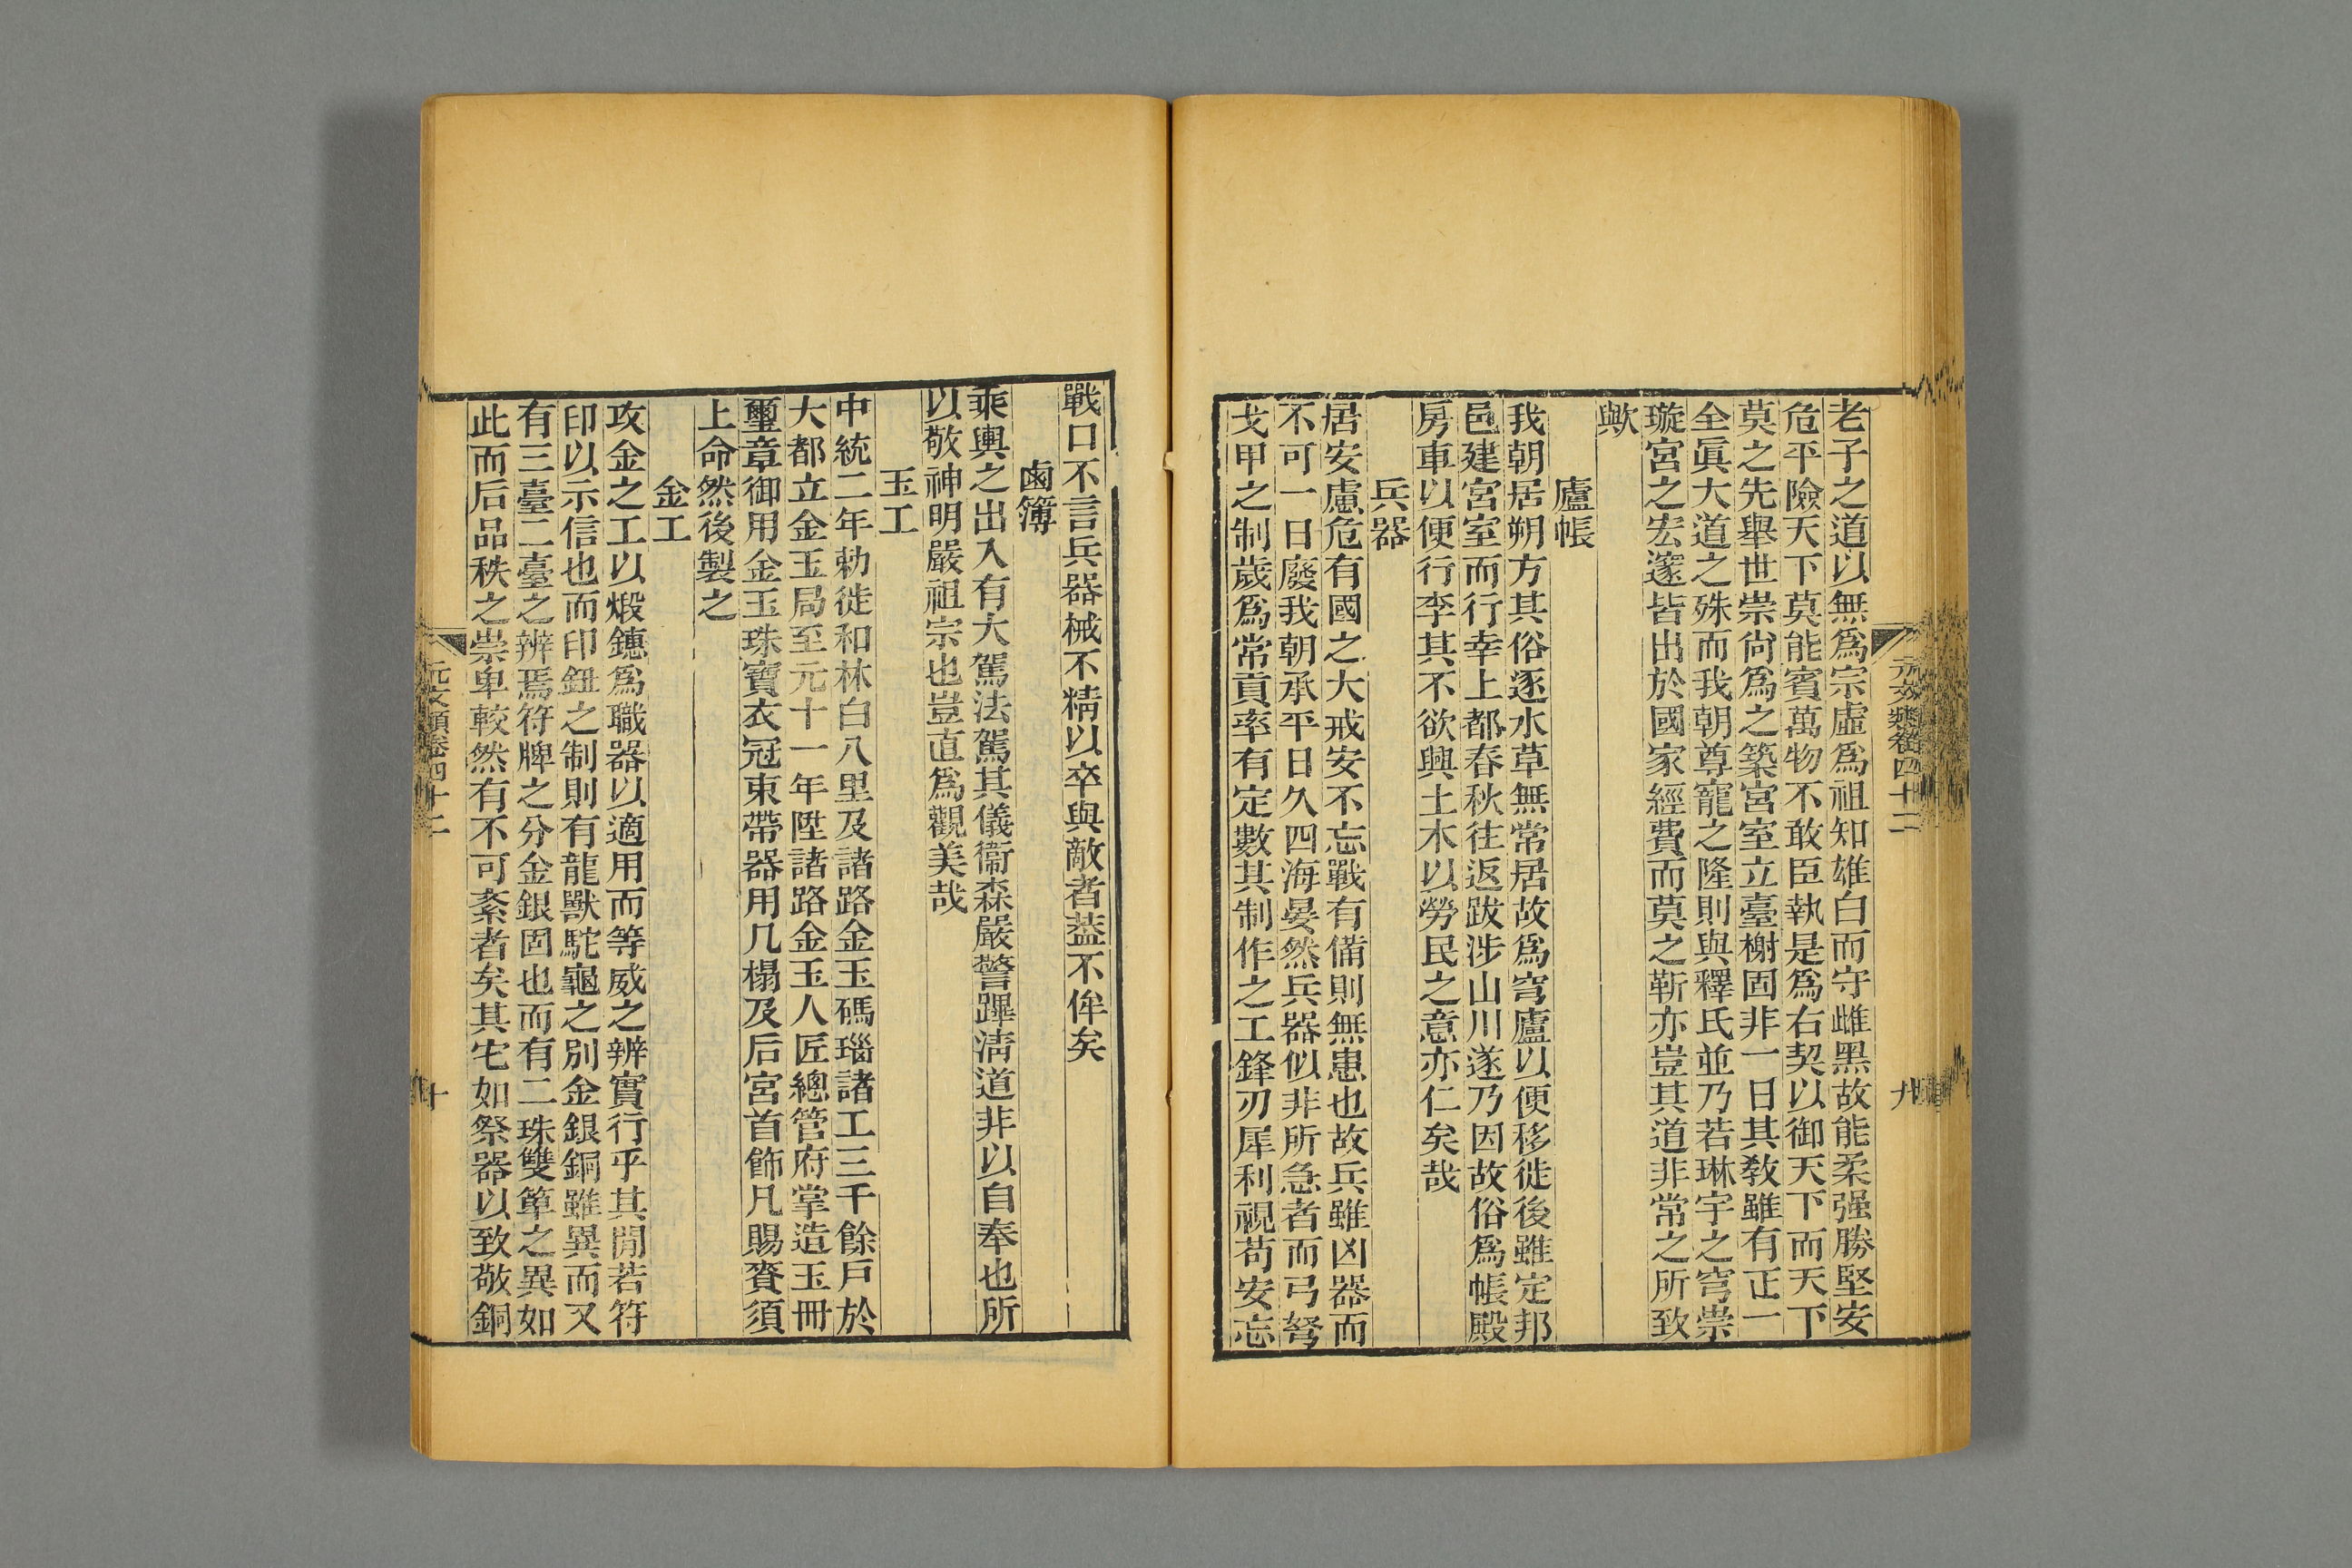 老子之道以無爲宗虛爲祖知雄白而守雌黑故能柔强勝堅安
危平險天下莫能賓萬物不敢臣執是爲右契以御天下而天下
莫之先舉世崇尙爲之築宮室立臺榭固非一日其敎雖有正一
全眞大道之殊而我朝尊寵之隆則與釋氏並乃若琳宇之穹崇
璇宮之宏邃皆出於國家經費而莫之靳亦豈其道非常之所致
歟
廬帳
我朝居朔方其俗逐水草無常居故爲穹廬以便移徙後雖定邦
邑建宮室而行幸上都春秋往返跋涉山川遂乃因故俗爲帳殿
房車以便行李其不欲興土木以勞民之意亦仁矣哉
兵器
居安慮危有國之大戒安不忘戰有備則無患也故兵雖凶器而
不可一日廢我朝承平日久四海晏然兵器似非所急者而弓弩
戈甲之制歲爲常貢率有定數其制作之工鋒刃犀利視苟安忘
元文類卷四十二
九
戰口不言兵器械不精以卒與敵者葢不侔矣
鹵簿
乘輿之出入有大駕法駕其儀衞森嚴警蹕淸道非以自奉也所
以敬神明嚴祖宗也豈直爲觀美哉
玉工
中統二年勅徙和林白八里及諸路金玉碼瑙諸工三千餘戶於
大都立金玉局至元十一年陞諸路金玉人匠總管府掌造玉冊
璽章御用金玉珠寶衣冠束帶器用几榻及后宮首飾凡賜賚須
上命然後製之
金工
攻金之工以煅鏸爲職器以適用而等威之辨實行乎其閒若符
印以示信也而印鈕之制則有龍獸駝龜之別金銀銅雖異而又
有三臺二臺之辨焉符牌之分金銀固也而有二珠雙箄之異如
此而后品秩之崇卑較然有不可紊者矣其宅如祭器以致敬銅
元文類卷四十二
十